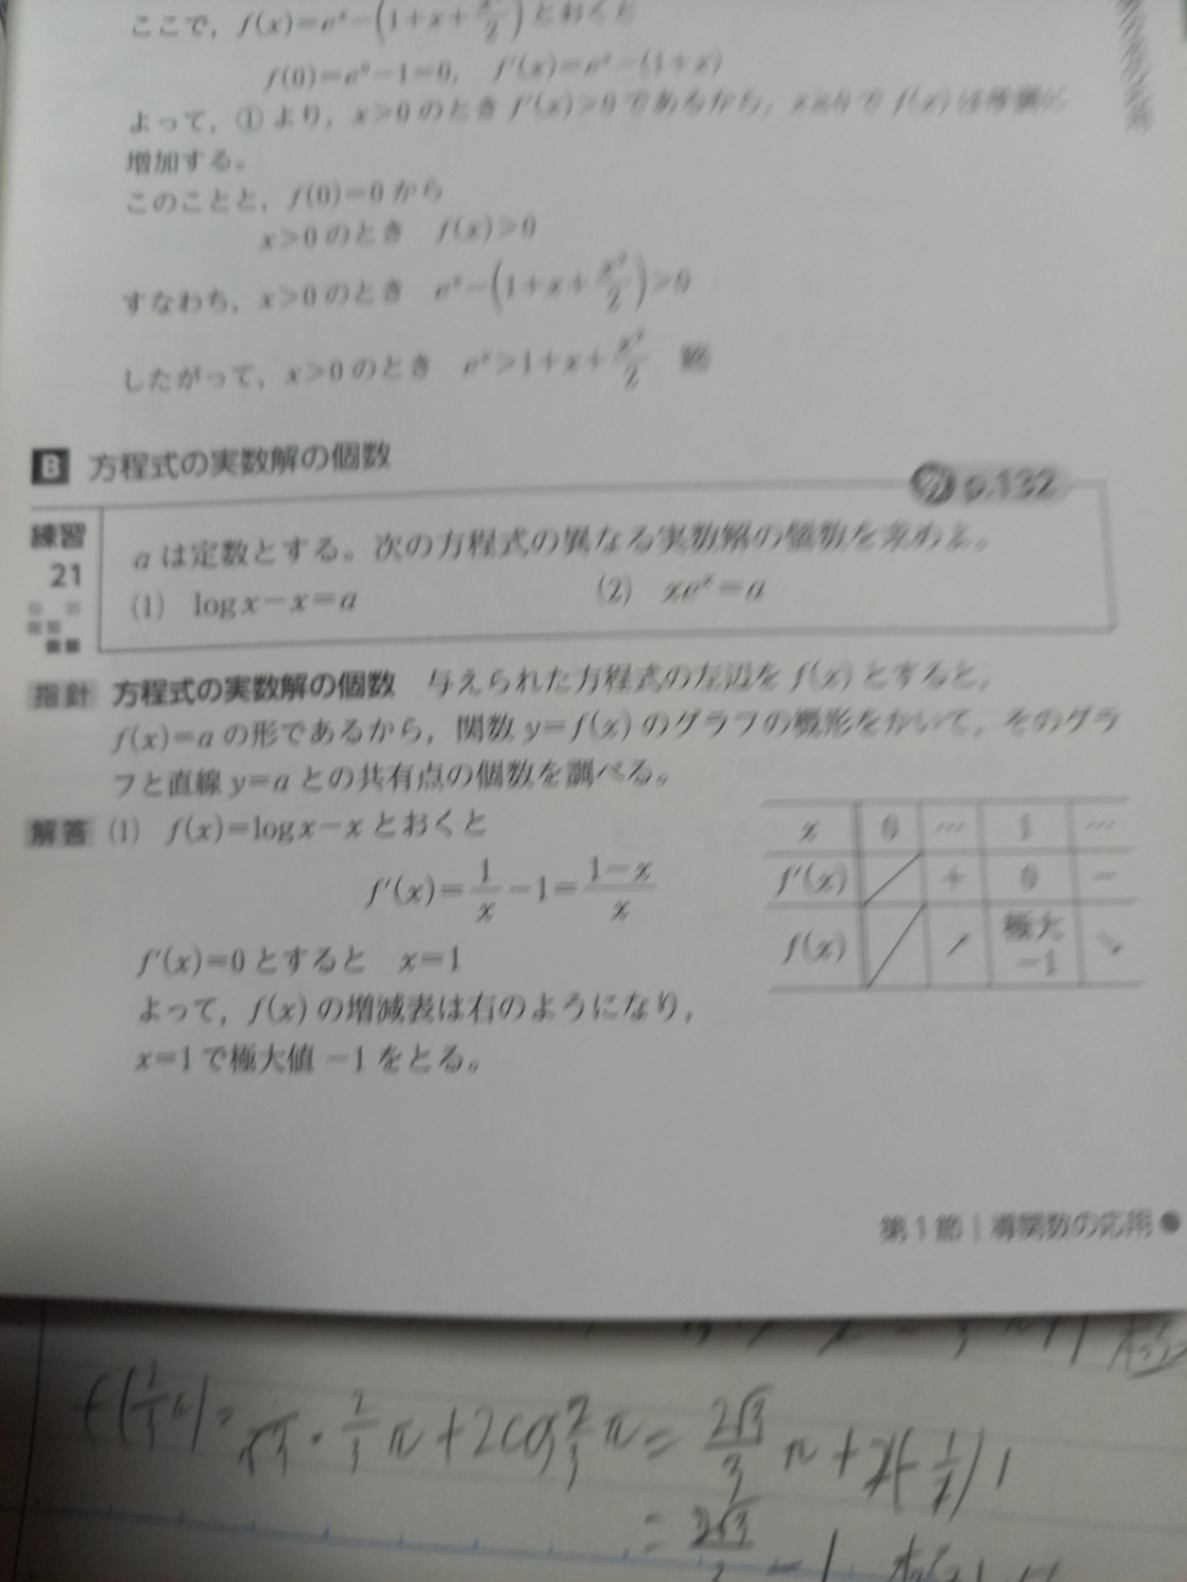 ここで，f(x)=eˣ−(1+x+x²/2)とおくと
f(0)=e⁰−1=0, f′(x)=eˣ−(1+x)
よって，①より，x>0のときf′(x)>0であるから，x≧0でf(x)は
増加する。
このことと，f(0)=0から
x>0のとき f(x)>0
すなわち，x>0のとき eˣ−(1+x+x²/2)>0
したがって，x>0のとき eˣ>1+x+x²/2 終
B 方程式の実数解の個数
p.132
練習 21
aは定数とする。次の方程式の異なる実数解の個数を求めよ。
(1) logx−x=a (2) xeˣ=a
指針 方程式の実数解の個数 与えられた方程式の左辺をf(x)とすると，
f(x)=aの形であるから，関数y=f(x)のグラフの概形をかいて，そのグラ
フと直線y=aとの共有点の個数を調べる。
解答 (1) f(x)=logx−xとおくと
f′(x)=1/x−1=(1−x)/x
f′(x)=0とすると x=1
よって，f(x)の増減表は右のようになり，
x=1で極大値−1をとる。
x 0 … 1 …
f′(x) + 0 −
f(x) ↗ 極大 −1 ↘
第1節｜導関数の応用●